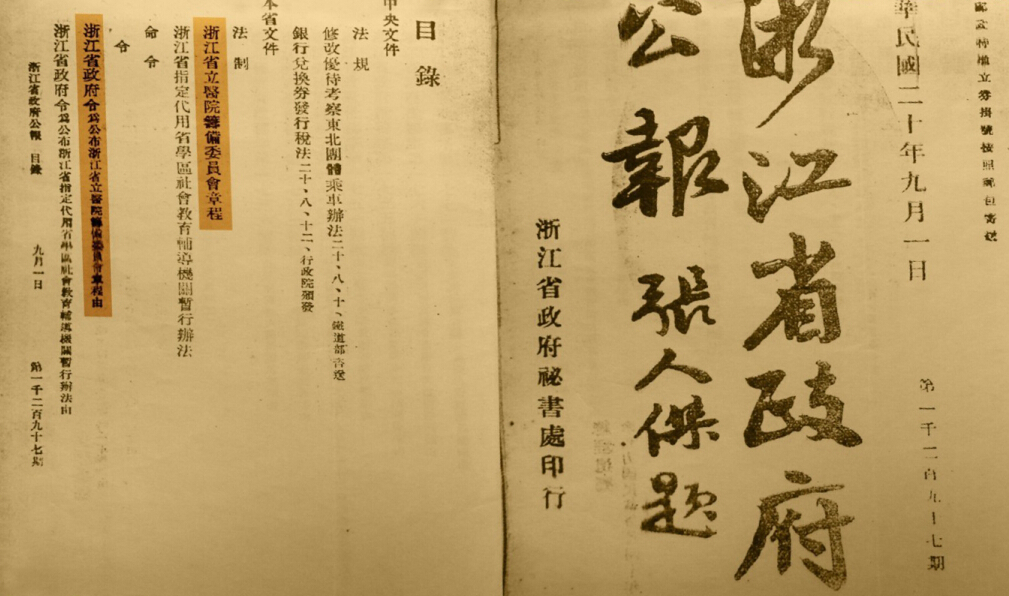 郵政特准立券掛號按照郵包寄遞
華民國二十年九月一日
第一千二百九十七期
浙江省政府
公報 張人傑題
浙江省政府祕書處印行
目錄
中央文件
法規
修改優待考察東北團體乘車辦法二十、八、十、鐵道部咨送
銀行兌換券發行稅法二十、八、十二、行政院頒發
本省文件
法制
浙江省立醫院籌備委員會章程
浙江省指定代用省學區社會教育輔導機關暫行辦法
命令
令
浙江省政府令爲公布浙江省立醫院籌備委員會章程由
浙江省政府令爲公布浙江省指定代用省學區社會教育輔導機關暫行辦法由
浙江省政府公報 目錄 九月一日 第一千二百九十七期